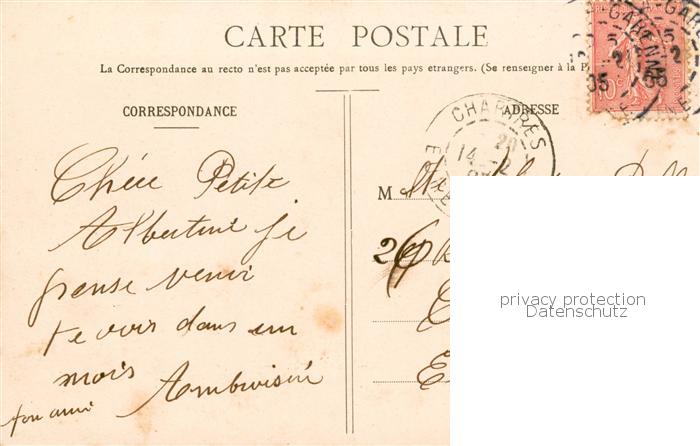 CARTE POSTALE
La Correspondance au recto n'est pas acceptée par tous les pays etrangers. (Se renseigner à la P
CORRESPONDANCE
ADRESSE
CHARTRES
14 - 2
GARENNE
05
10c
M
26
Chére Petite
Albertine je
pense venir
te voir dans un
mois
ton ami Ambroisin
privacy protection
Datenschutz